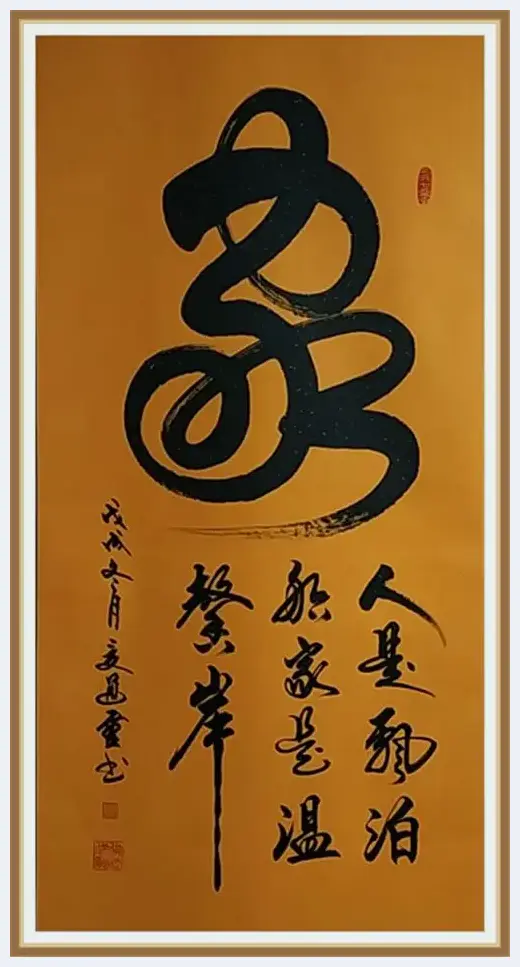 家
人是飘泊
船家是温
馨岸
戊戌冬月书